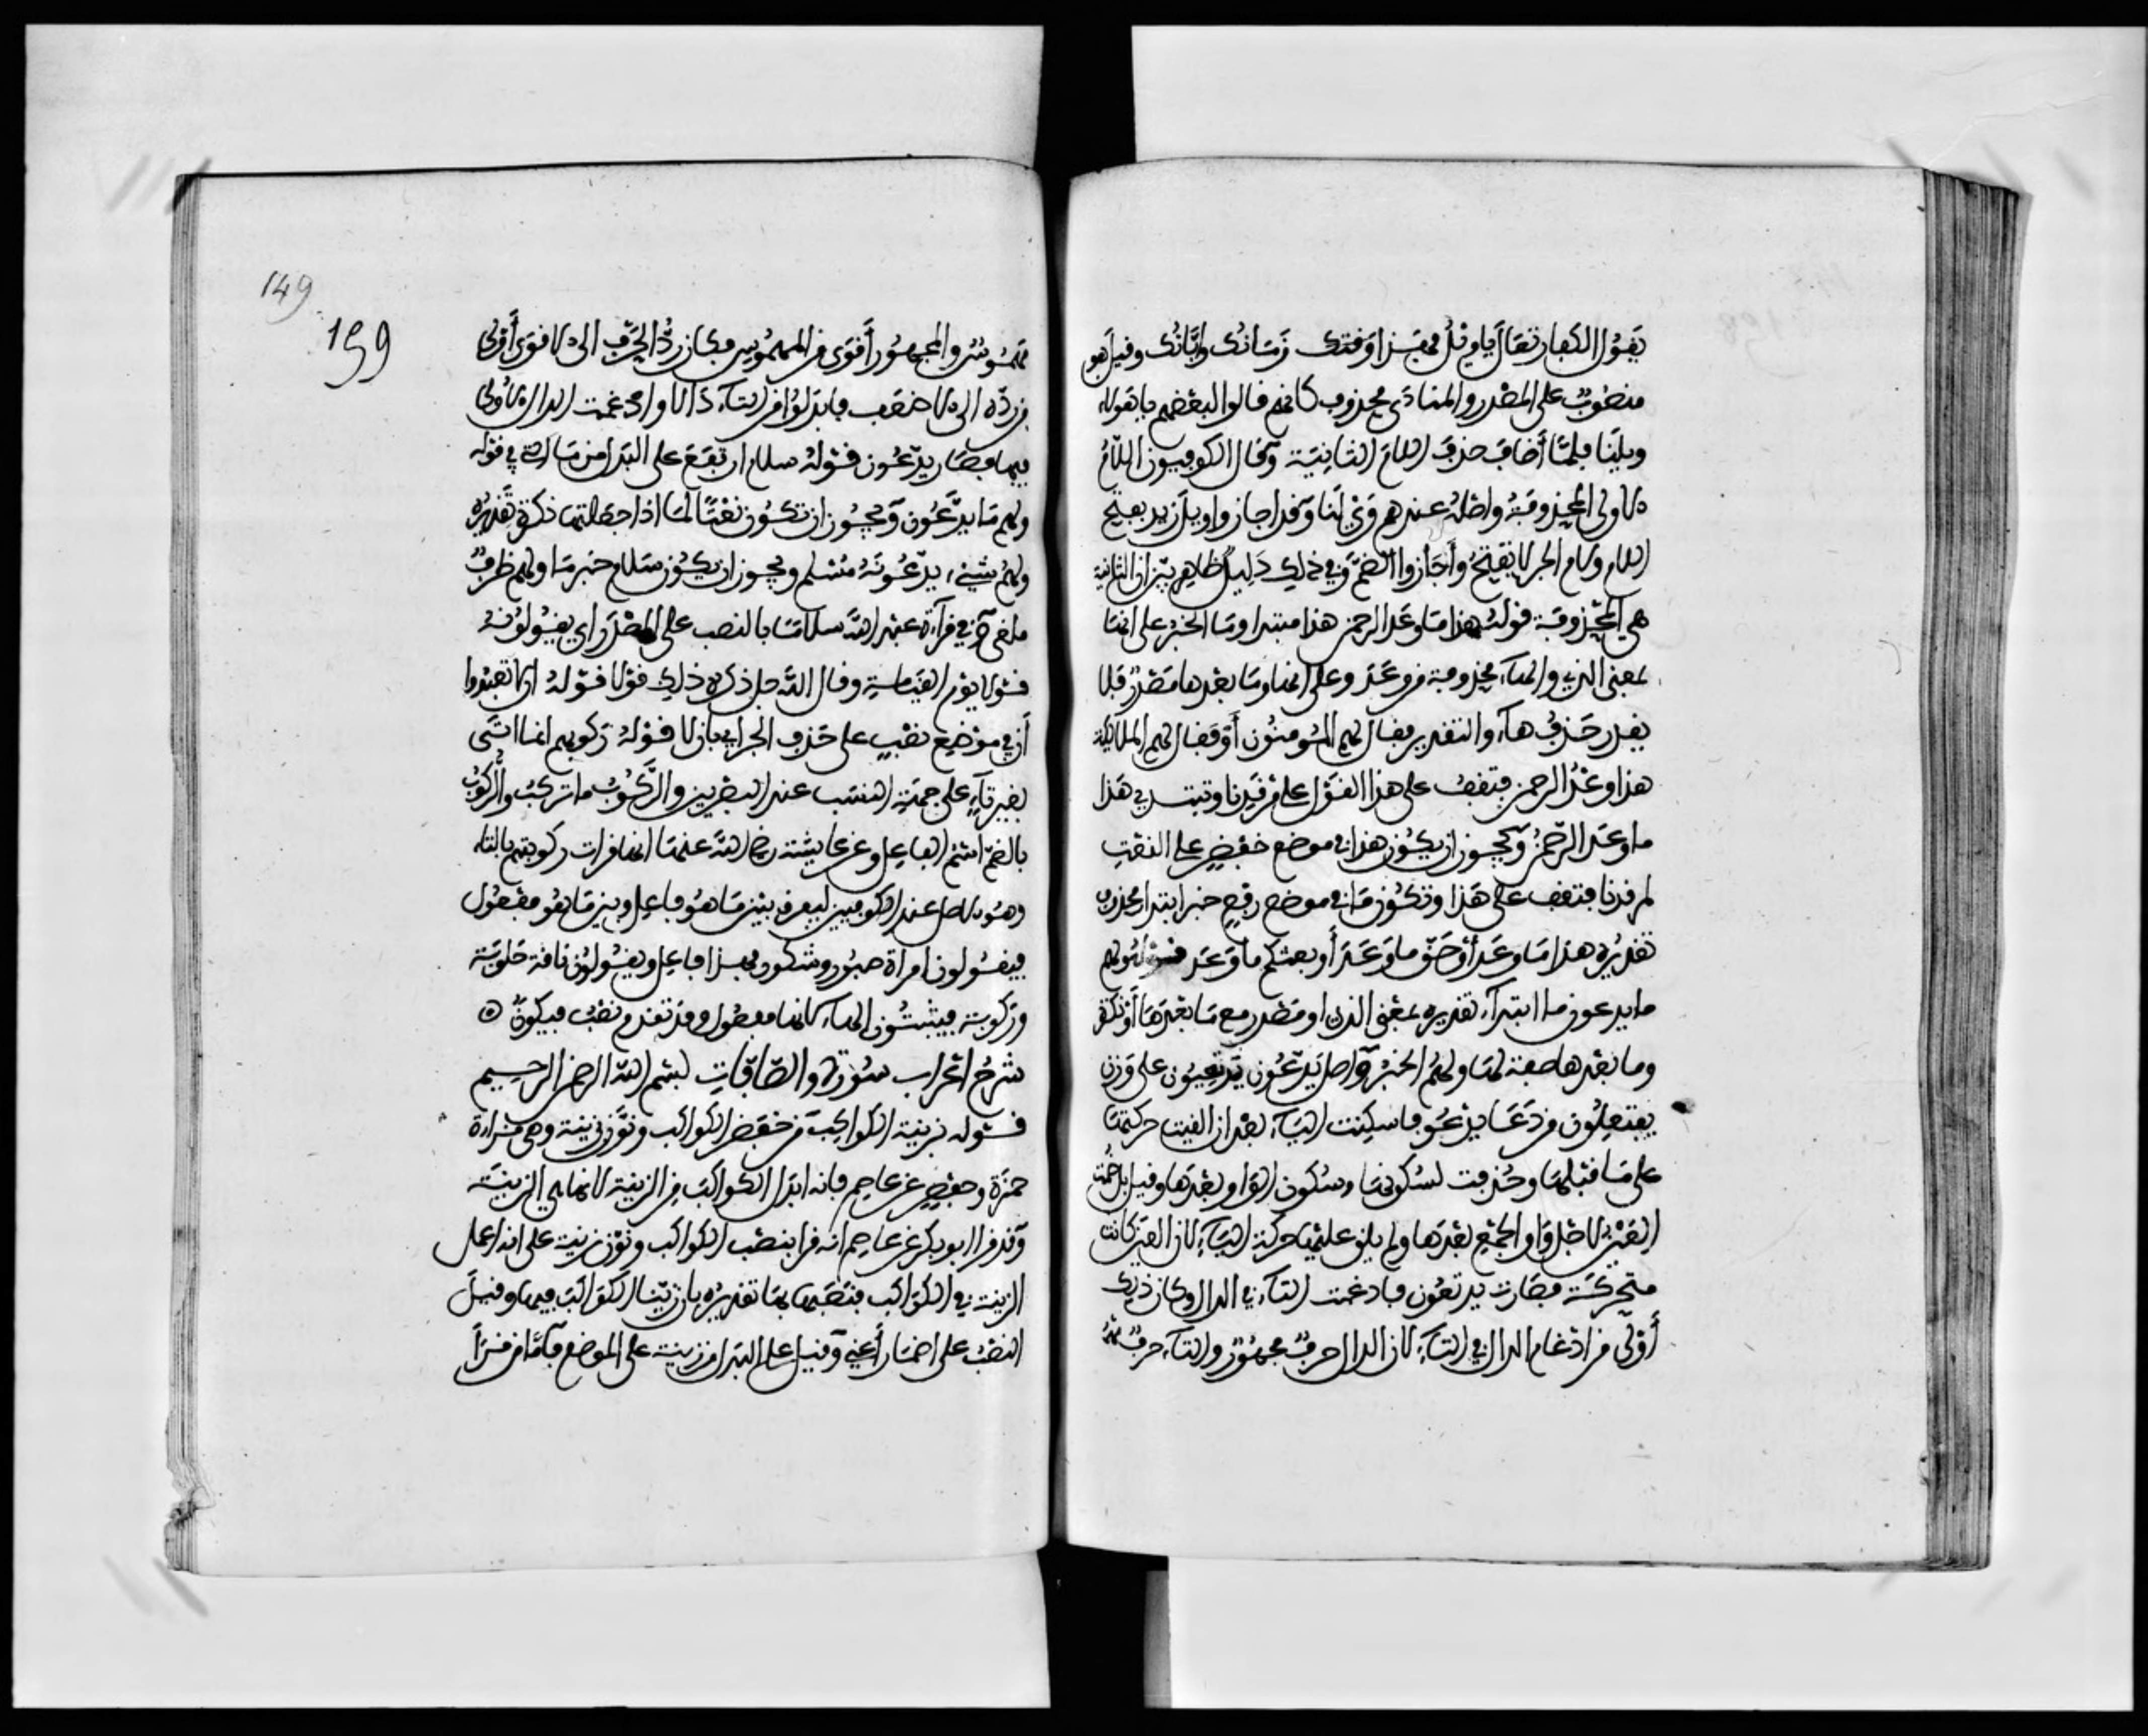 يقول الكفار تعال يا ويل فهذا وقتك زمانك وإبانك وقيل هو
منصوب على المصدر والمنادى محذوف كانهم قالوا لبعضهم يا هؤلاء
ويلنا فلما أضاف حذف اللام الثانية وقال الكوفيون اللام
الاولى المحذوفة واصله عندهم وي لنا وقد اجازوا ويل زيد بفتح
اللام ولام الجر لا تفتح وأجازوا الضم وفي ذلك دليل ظاهر بين ان الثانية
هي المحذوفة قوله هذا ما وعد الرحمن هذا مبتدا وما الخبر على انها
بمعنى الذي والهاء محذوفة من وعد وعلى انها وما بعدها مصدر فلا
يقدر حذف هاء والتقدير فقال لهم المومنون أو فقال لهم الملائكة
هذا وعد الرحمن فتقف على هذا القول على مرقدنا وتبتدي هذا
ما وعد الرحمن ويجوز ان يكون هذا في موضع خفض على النعت
لمرقدنا فتقف على هذا وتكون ما في موضع رفع خبر ابتداء محذوف
تقديره هذا ما وعد أو حق ما وعد أو بعثكم ما وعد قوله ولهم
ما يدعون ما ابتداء تقديره بمعنى الذي او مصدر مع ما بعدها أو نكرة
وما بعدها صفة لها ولهم الخبر واصل يدعون يدتعيون على وزن
يفتعلون من دعا يدعو فاسكنت الياء بعد ان القيت حركتها
على ما قبلها وحذفت لسكونها وسكون الواو بعدها وقيل بل ضمت
العين لاجل واو الجمع بعدها ولم يلق عليها حركة الياء لان العين كانت
متحركة فصارت يدتعون فادغمت التاء في الدال وكان ذلك
أولى من ادغام الدال في التاء لان الدال حرف مجهور والتاء حرف
مهموس والمجهور أقوى من المهموس فكان رد الحرف الى الاقوى أولى
من رده الى الاضعف فابدلوا من التاء دالا وادغمت الدال الاولى
فيها فصار يدعون قوله سلام ارتفع على البدل من ما التي في قوله
ولهم ما يدعون ويجوز ان تكون نعتا لما اذا جعلتها نكرة تقديره
ولهم شيء يدعونه مسلم ويجوز ان يكون سلام خبر ما ولهم ظرف
ملغى وفي قراءة عبد الله سلاما بالنصب على المصدر أي يقولونه
قولا يوم القيامة وقال الله جل ذكره ذلك قولا قوله ان لا تعبدوا
أن في موضع نصب على حذف الجر أي بان لا قوله ركوبهم انما اتى
بغير تاء على جهة النسب عند البصريين والركوب ما تركب والركوب
بالضم اسم الفاعل وعن عايشة رضي الله عنها انها قرات ركوبتهم بالتاء
وهو الاصل عند الكوفيين ليفرق بين ما هو فاعل وبين ما هو مفعول
فيقولون امراة صبور وشكور فهذا فاعل ويقولون ناقة حلوبة
وركوبة فيثبتون الهاء لانها مفعول وقد تقدم نصب فيكون
شرح اعراب سورة والصافات بسم الله الرحمن الرحيم
قوله بزينة الكواكب من خفض الكواكب ونون زينة وهي قراءة
حمزة وحفص عن عاصم فانه ابدل الكواكب من الزينة لانها هي الزينة
وقد قرا ابو بكر عن عاصم انه قرا بنصب الكواكب ونون زينة على انه اعمل
الزينة في الكواكب فنصبها بها تقديره بان زينا الكواكب فيها وقيل
النصب على اضمار أعني وقيل على البدل من زينة على الموضع فأما من قرأ
149
159